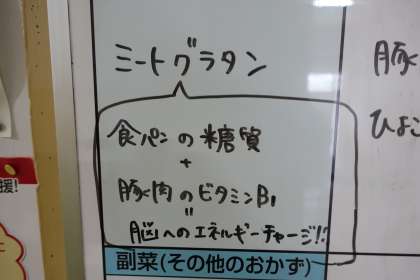 ミートグラタン
食パンの糖質
+
豚肉のビタミンB1
"
脳へのエネルギーチャージ!!
副菜(その他のおかず)
豚
ひよこ
援!